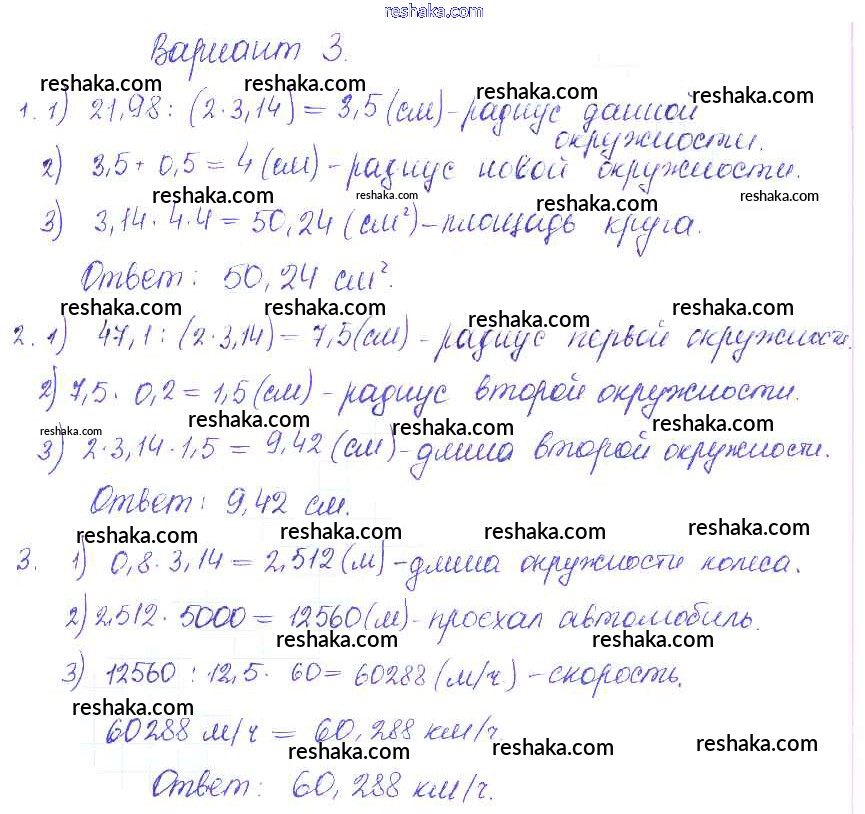 reshaka.com
Вариант 3.
reshaka.com reshaka.com reshaka.com reshaka.com
1. 1) 21,98 : (2·3,14) = 3,5 (см) - радиус данной
окружности.
2) 3,5 + 0,5 = 4 (см) - радиус новой окружности.
reshaka.com reshaka.com reshaka.com reshaka.com
3) 3,14 · 4 · 4 = 50,24 (см²) - площадь круга.
Ответ: 50,24 см².
reshaka.com reshaka.com reshaka.com reshaka.com
2. 1) 47,1 : (2·3,14) = 7,5 (см) - радиус первой окружности.
2) 7,5 · 0,2 = 1,5 (см) - радиус второй окружности.
reshaka.com reshaka.com reshaka.com reshaka.com
3) 2·3,14·1,5 = 9,42 (см) - длина второй окружности.
Ответ: 9,42 см.
reshaka.com reshaka.com reshaka.com reshaka.com
3. 1) 0,8 · 3,14 = 2,512 (м) - длина окружности колеса.
2) 2,512 · 5000 = 12560 (м) - проехал автомобиль.
reshaka.com reshaka.com reshaka.com
3) 12560 : 12,5 · 60 = 60288 (м/ч) - скорость.
reshaka.com
60288 м/ч = 60,288 км/ч.
reshaka.com reshaka.com reshaka.com
Ответ: 60,288 км/ч.